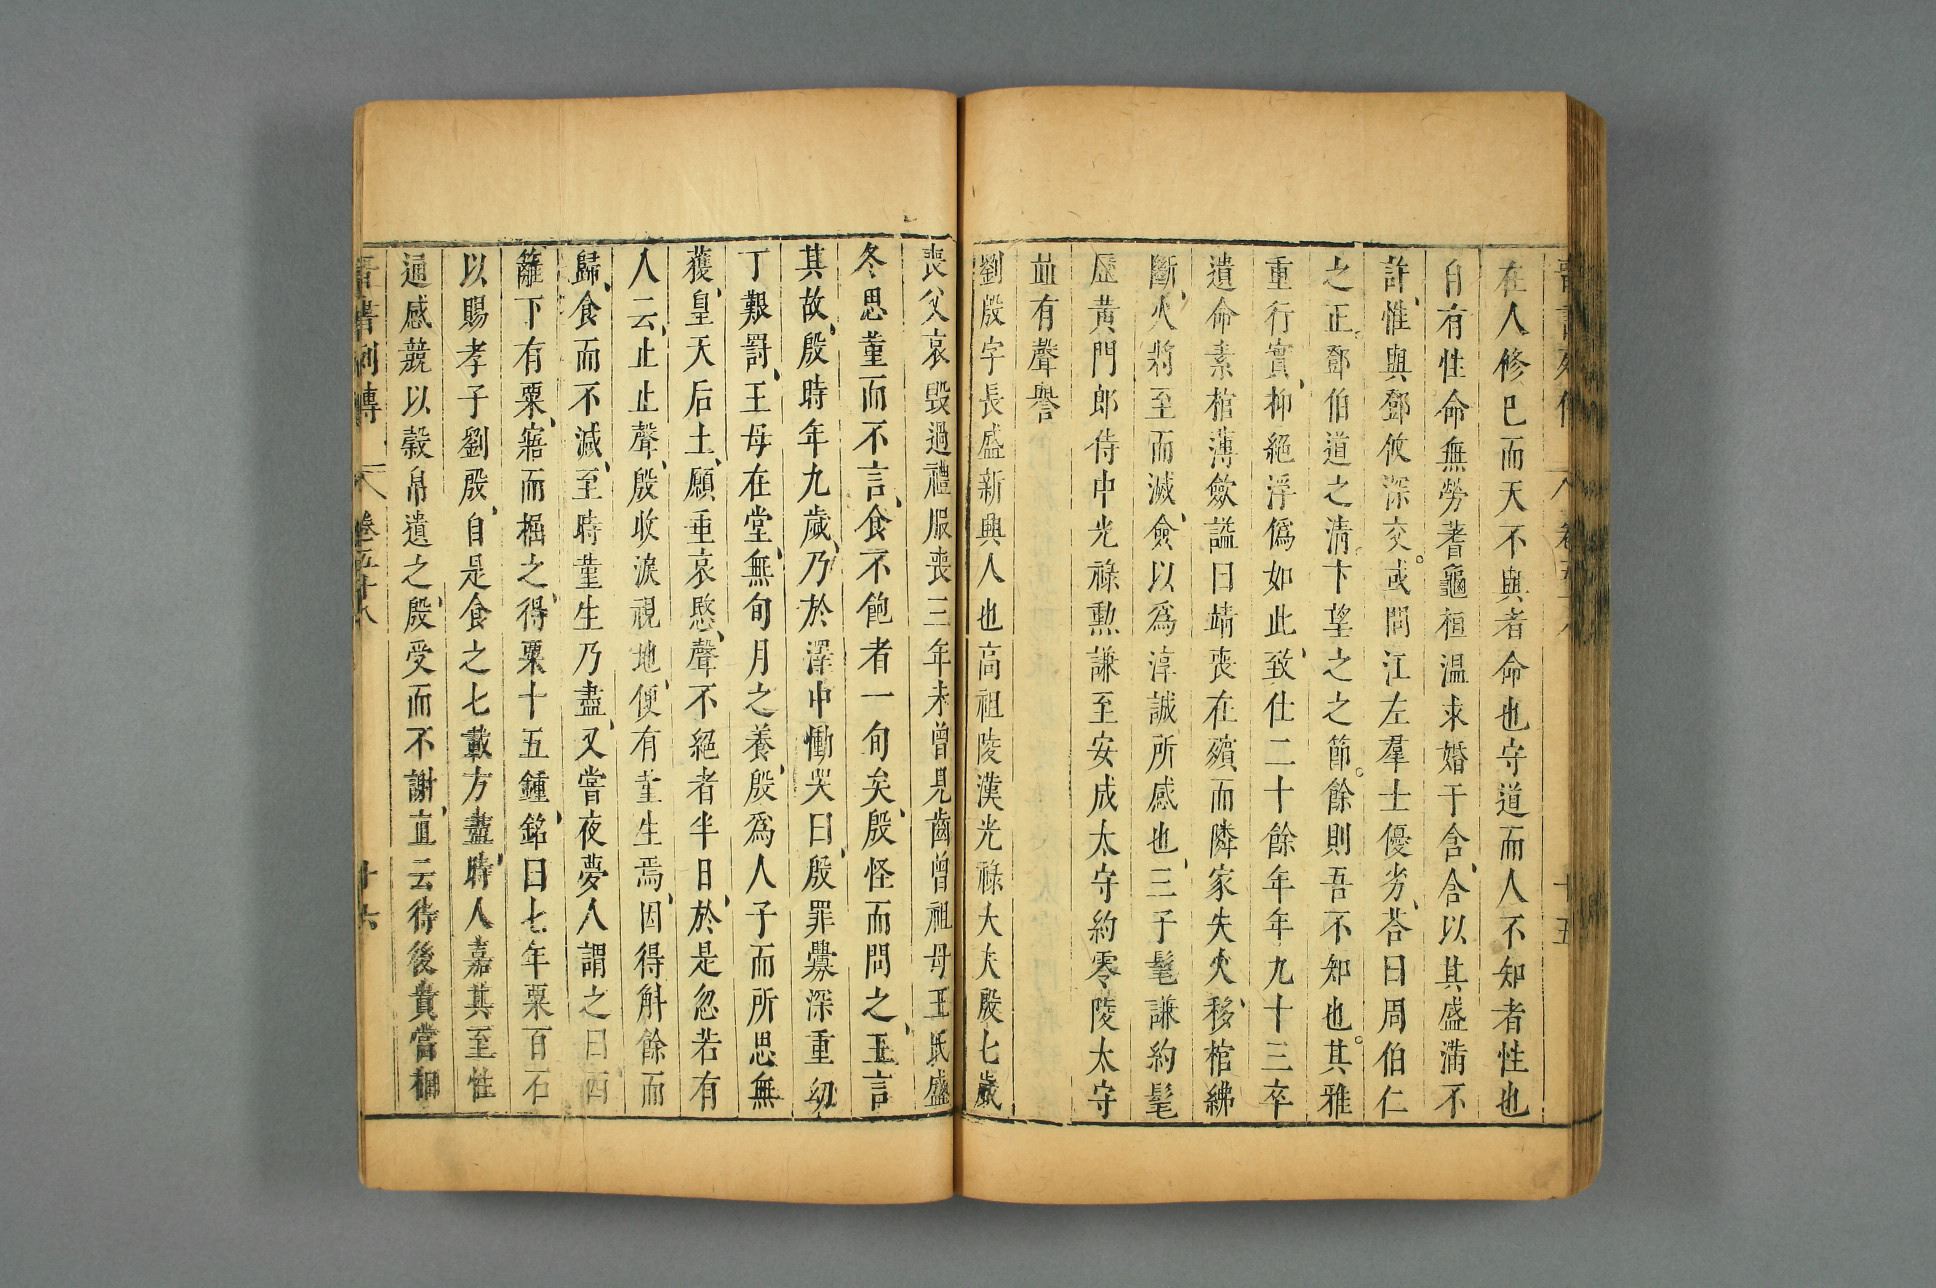 晉書列傳 卷五十八 十五
在人修已而天不與者命也守道而人不知者性也
自有性命無勞蓍龜桓溫求婚于含含以其盛滿不
許惟與鄧攸深交或問江左羣士優劣荅曰周伯仁
之正鄧伯道之清卞望之之節餘則吾不知也其雅
重行實抑絕浮僞如此致仕二十餘年年九十三卒
遺命素棺薄斂謚曰靖喪在殯而隣家失火移棺紼
斷火將至而滅僉以爲淳誠所感也三子髦謙約髦
歷黃門郎侍中光祿勲謙至安成太守約零陵太守
並有聲譽
劉殷字長盛新興人也高祖陵漢光祿大夫殷七歲
喪父哀毀過禮服喪三年未曾見齒曾祖母王氏盛
冬思堇而不言食不飽者一旬矣殷怪而問之王言
其故殷時年九歲乃於澤中慟哭曰殷罪釁深重幼
丁艱罰王母在堂無旬月之養殷爲人子而所思無
獲皇天后土願垂哀愍聲不絕者半日於是忽若有
人云止止聲殷收淚視地便有堇生焉因得斛餘而
歸食而不減至時堇生乃盡又嘗夜夢人謂之曰西
籬下有粟寤而掘之得粟十五鍾銘曰七年粟百石
以賜孝子劉殷自是食之七載方盡時人嘉其至性
通感競以穀帛遺之殷受而不謝直云待後貴當相
晉書列傳 卷五十八 十六